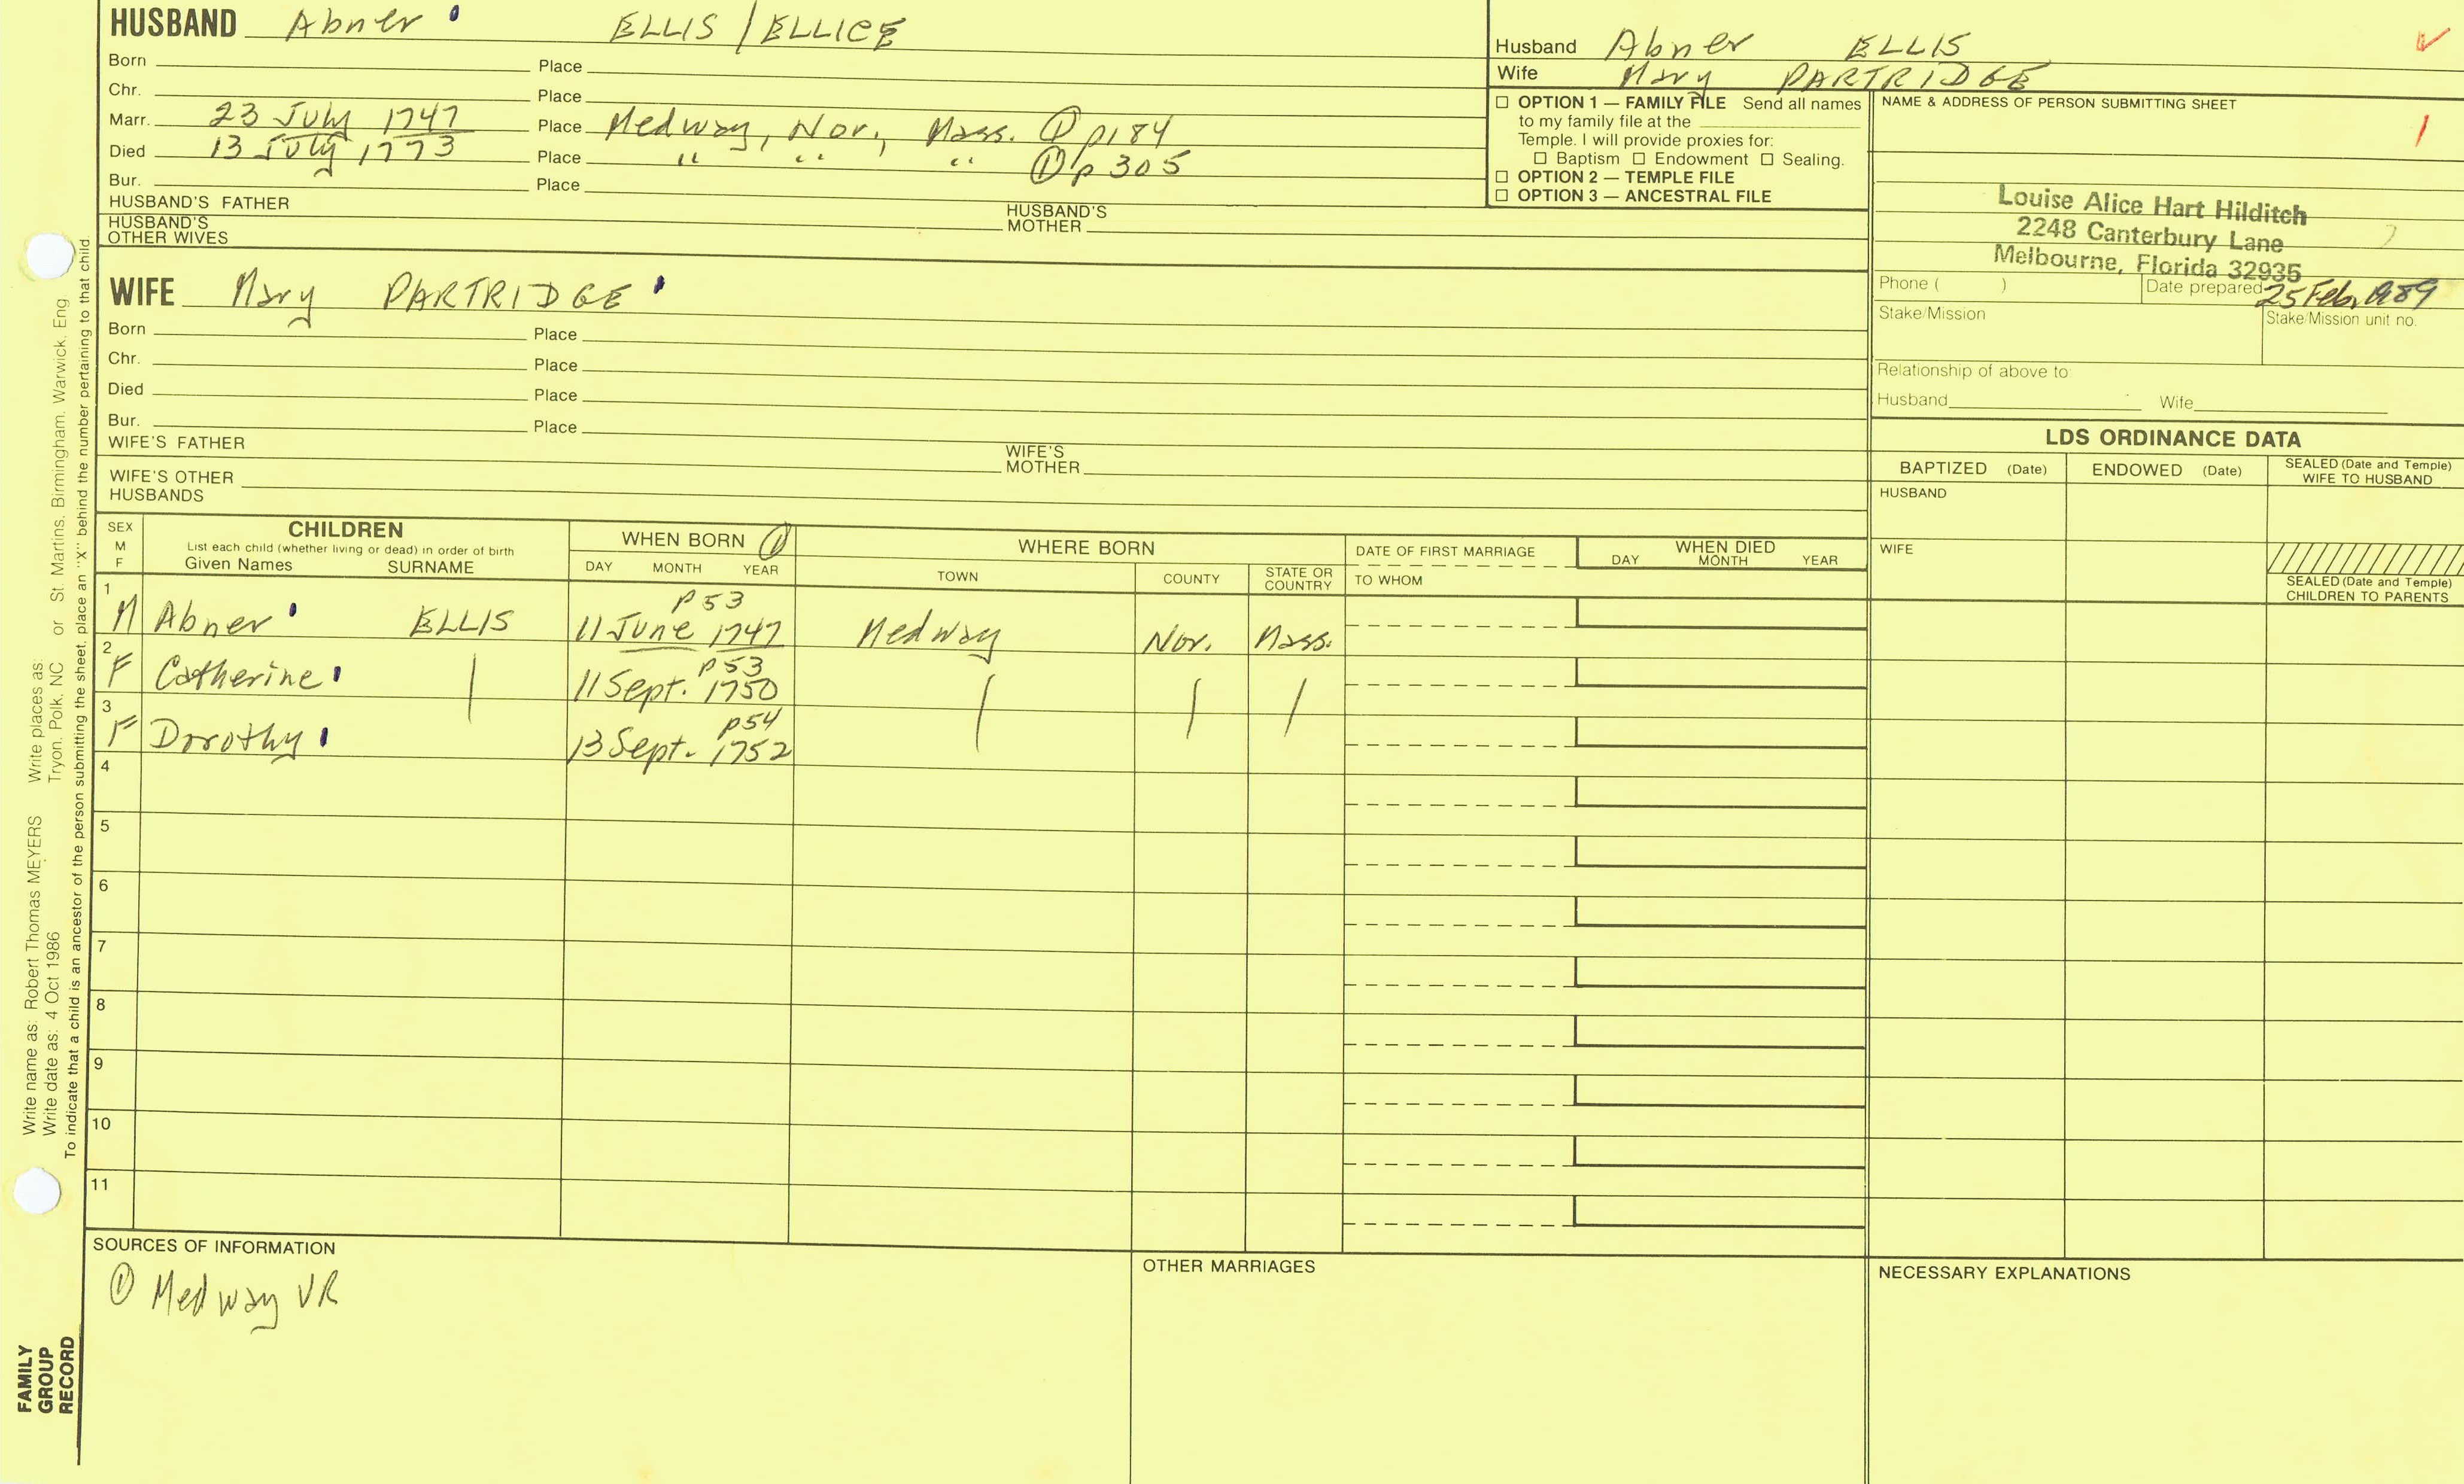 HUSBAND Abner ELLIS / ELLICE
Born Place
Chr. Place
Marr. 23 July 1747 Place Medway, Nor., Mass. ① p184
Died 13 July 1773 Place " " " ① p305
Bur. Place
HUSBAND'S FATHER HUSBAND'S MOTHER
HUSBAND'S OTHER WIVES
WIFE Mary PARTRIDGE
Born Place
Chr. Place
Died Place
Bur. Place
WIFE'S FATHER WIFE'S MOTHER
WIFE'S OTHER HUSBANDS
Husband Abner ELLIS
Wife Mary PARTRIDGE
☐ OPTION 1 — FAMILY FILE Send all names
to my family file at the
Temple. I will provide proxies for:
☐ Baptism ☐ Endowment ☐ Sealing.
☐ OPTION 2 — TEMPLE FILE
☐ OPTION 3 — ANCESTRAL FILE
NAME & ADDRESS OF PERSON SUBMITTING SHEET
Louise Alice Hart Hilditch
2248 Canterbury Lane
Melbourne, Florida 32935
Phone ( ) Date prepared 25 Feb, 1989
Stake/Mission Stake/Mission unit no.
Relationship of above to:
Husband Wife
LDS ORDINANCE DATA
BAPTIZED (Date) ENDOWED (Date) SEALED (Date and Temple) WIFE TO HUSBAND
HUSBAND
WIFE
SEALED (Date and Temple) CHILDREN TO PARENTS
SEX M F
CHILDREN
List each child (whether living or dead) in order of birth
Given Names SURNAME
WHEN BORN ①
DAY MONTH YEAR
WHERE BORN
TOWN COUNTY STATE OR COUNTRY
DATE OF FIRST MARRIAGE
TO WHOM
WHEN DIED
DAY MONTH YEAR
p53
1 M Abner ELLIS 11 June 1747 Medway Nor. Mass.
p53
2 F Catherine | 11 Sept. 1750 | | |
p54
3 F Dorothy 13 Sept. 1752
4
5
6
7
8
9
10
11
SOURCES OF INFORMATION
① Medway VR
OTHER MARRIAGES
NECESSARY EXPLANATIONS
Write name as: Robert Thomas MEYERS Write places as: Tryon, Polk, NC or St. Martins, Birmingham, Warwick, Eng
Write date as: 4 Oct 1986
To indicate that a child is an ancestor of the person submitting the sheet, place an "X" behind the number pertaining to that child
FAMILY
GROUP
RECORD